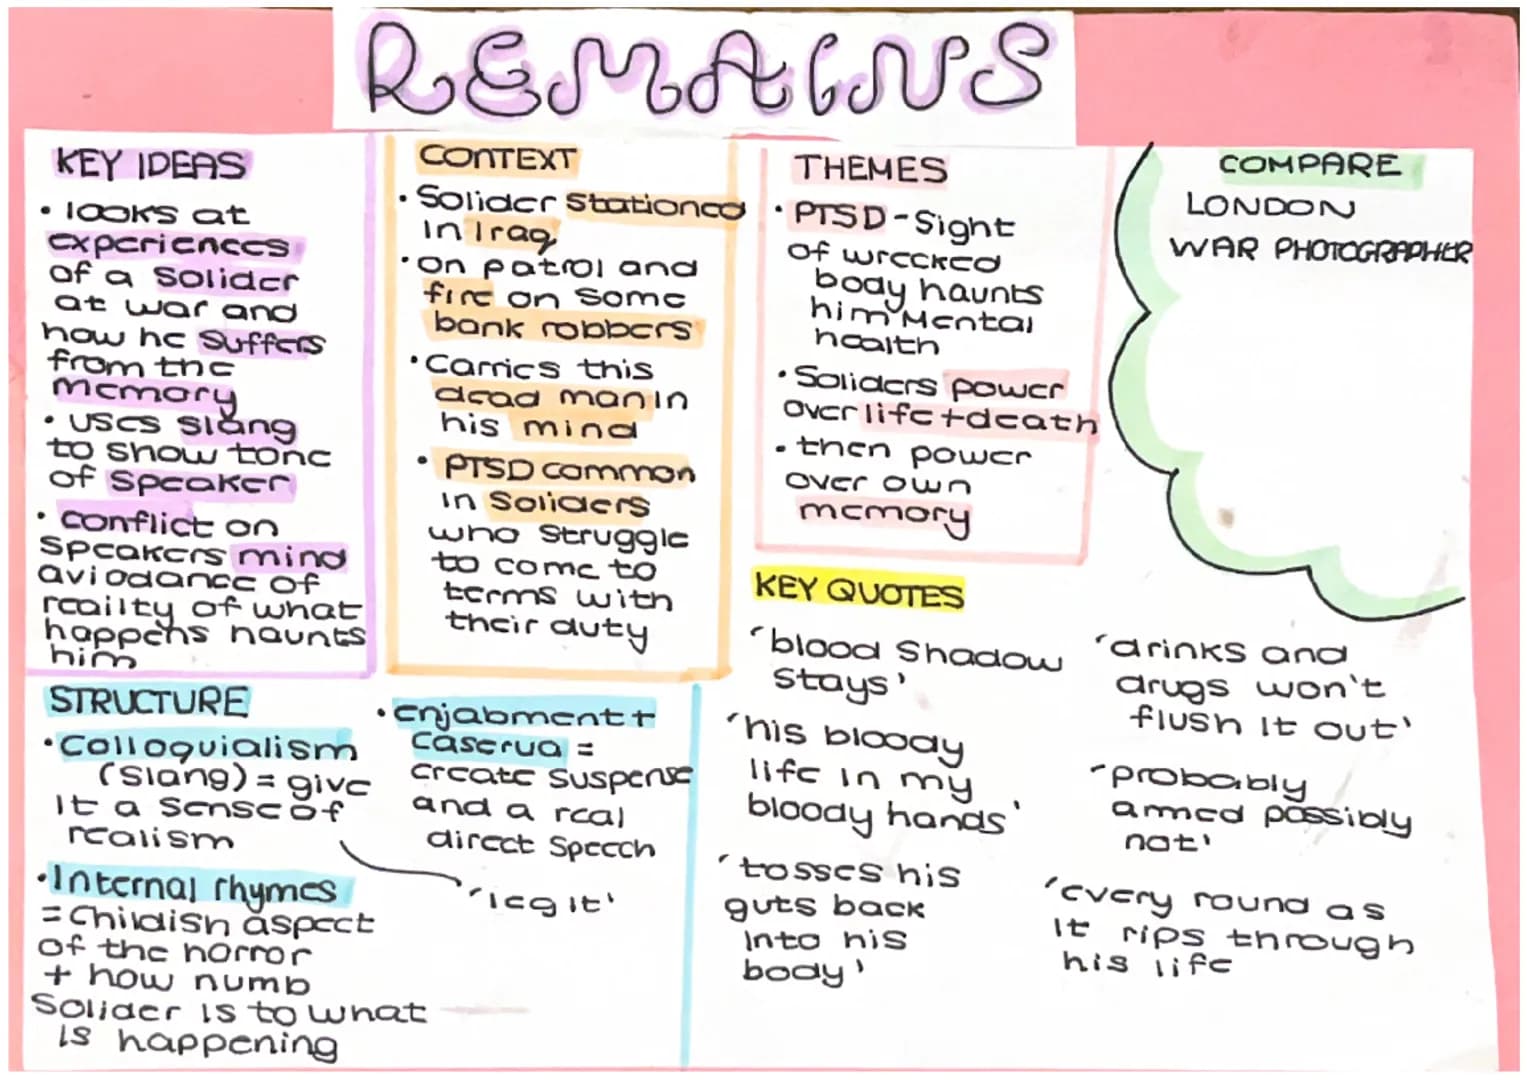 REMAINS
KEY IDEAS
• looks at
experiences
of a Solider
at war and
how he suffers
from the
memory
• uses slang
to show tone
of Speaker
• Conflict on
Speakers mind
aviodance of
reailty of what
happens haunts
him
CONTEXT
• Solider Stationed
in Iraq
• on patrol and
fire on some
bank robbers
• Carries this
dead man in
his mind
• PTSD common
in Soliders
who struggle
to come to
terms with
their duty
THEMES
• PTSD - Sight
of wrecked
body haunts
him Mental
health
• Soliders power
over life + death
• then power
over own
memory
COMPARE
LONDON
WAR PHOTOGRAPHER
STRUCTURE
• Colloquialism
(Slang) = give
it a sense of
realism
• Internal rhymes
= Childish aspect
of the horror
+ how numb
Solider is to what
is happening
• enjabment +
caserua =
create suspense
and a real
direct Speech
'leg it'
KEY QUOTES
'blood Shadow
stays'
'his bloody
life in my
bloody hands'
'tosses his
guts back
into his
body'
'drinks and
drugs won't
flush it out'
'probably
armed possibly
not'
'every round as
it rips through
his life